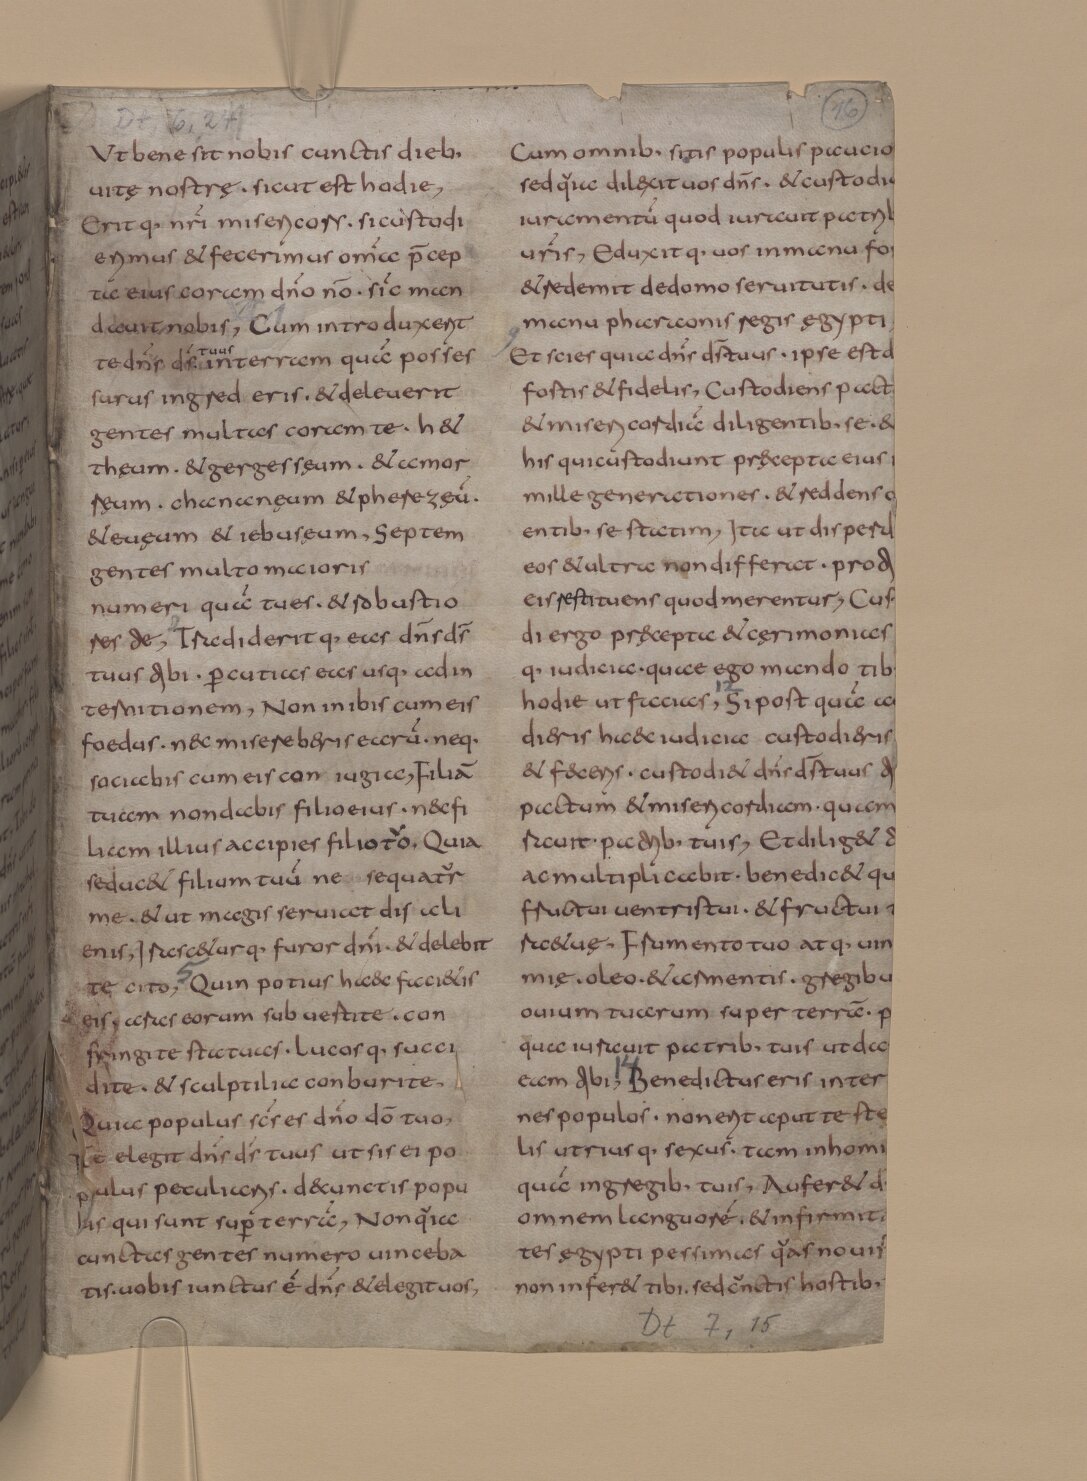 Dt, 6, 24
16
Ut bene sit nobis cunctis dieb;
uitę nostrę. sicut est hodie,
Erit q; nr̄i misericors. si custodi
erimus & fecerimus om̄ia p̄cep
ta eius coram dn̄o nō. sic man
dauit nobis, Cum introduxerit
te dn̄s ds̄ tuus in terram quā posses
surus ingred eris. & deleuerit
gentes multas coram te. h&
thęum. & gergessęum. & amor
ręum. chananęum & pherezęū.
& euęum & iebusęum, Septem
gentes multo maioris
numeri quā tu es. & robustio
res te, Tradiderit q; eas dn̄s ds̄
tuus tibi. ꝑcuties eas usq; ad in
ternitionem, Non inibis cum eis
foedus. nec misereberis earū. neq;
sociabis cum eis con iugia, Filiā
tuam non dabis filio eius. nec fi
liam illius accipies filio tuo, Quia
seduc& filium tuū ne sequatur
me. & ut magis seruiat dis ali
enis, Irascetur q; furor dn̄i. & delebit
te cito, 5 Quin potius haec faci&is
eis, aras eorum subuertite. con
fringite statuas. Lucos q; succi
dite. & sculptilia conburite,
Quia populus sc̄s es dn̄o dō tuo,
Te elegit dn̄s ds̄ tuus ut sis ei po
pulus peculiaris. de cunctis popu
lis qui sunt suꝑ terrā, Non quia
cunctas gentes numero uinceba
tis. uobis iunctus ē dn̄s & elegit uos,
Cum omnib; sitis populis paucio
sed quia dilexit uos dn̄s. & custodi
iuramentū quod iurauit patrib
uris, Eduxit q; uos in manu for
& redemit de domo seruitutis. de
manu pharaonis regis ęgypti
9 Et scies quia dn̄s ds̄ tuus. ipse est d
fortis & fidelis, Custodiens pact
& misericordiā diligentib; se. &
his qui custodiunt pręcepta eius
mille generationes. & reddens o
entib; se statim, Ita ut disperd
eos & ultra non differat. prot
eis restituens quod merentur, Cus
di ergo pręcepta & cęrimonias
q; iudicia. quae ego mando tib
hodie ut facias, 12 Si post quā au
dieris haec iudicia custodieris
& feceris. custodi& dn̄s ds̄ tuus ti
pactum & misericordiam. quam
rauit patrib; tuis, Et dilig& t
ac multiplicabit. benedic& qu
fructui uentris tui. & fructui t
rae tuę, Frumento tuo at q; uin
mię. oleo. & armentis. gregibu
ouium tuarum super terrā. p
qua iurauit patrib; tuis ut da
eam tibi, 14 Benedictus eris inter
nes populos. non erit aput te ste
lis utrius q; sexus. tam in homi
quā in gregib; tuis, Aufer& d
omnem languorē. & infirmit
tes ęgypti pessimas quas nouis
non infer& tibi. sed cunctis hostib;
Dt 7, 15